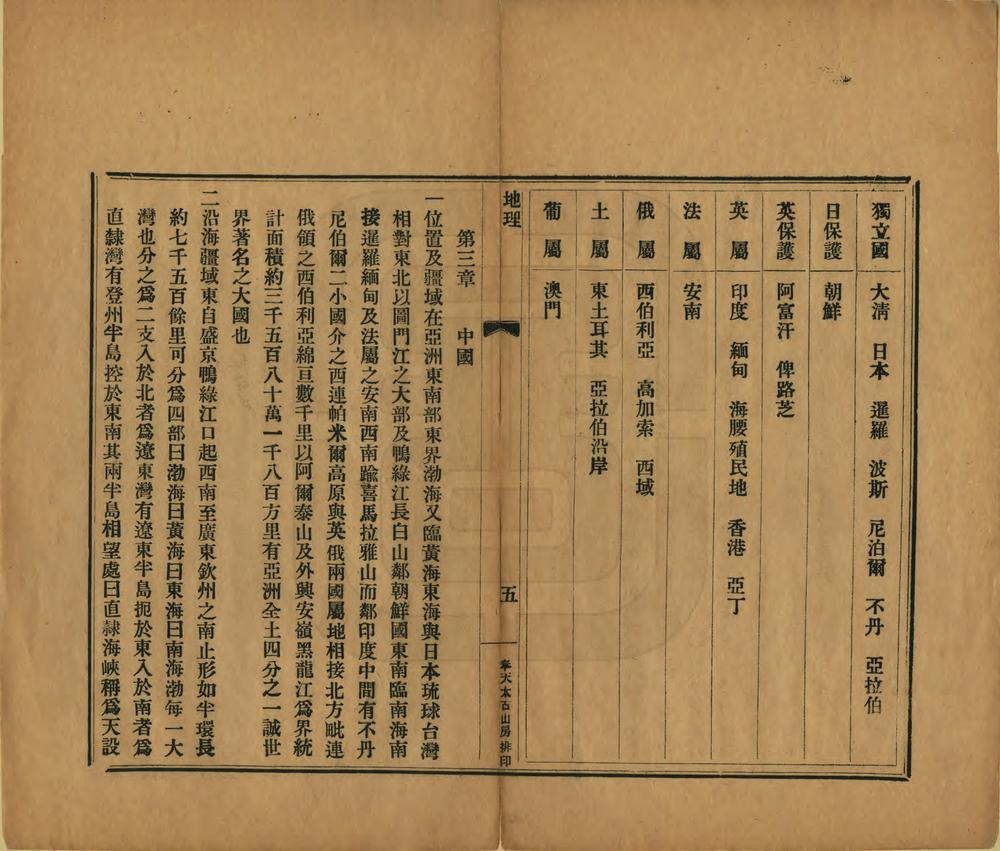 獨立國 大淸 日本 暹羅 波斯 尼泊爾 不丹 亞拉伯
日保護 朝鮮
英保護 阿富汗 俾路芝
英屬 印度 緬甸 海腰殖民地 香港 亞丁
法屬 安南
俄屬 西伯利亞 高加索 西域
土屬 東土耳其 亞拉伯沿岸
葡屬 澳門
地理 五 奉天太古山房排印
第三章 中國
一位置及疆域在亞洲東南部東界渤海又臨黃海東海與日本琉球台灣
相對東北以圖門江之大部及鴨綠江長白山鄰朝鮮國東南臨南海南
接暹羅緬甸及法屬之安南西南踰喜馬拉雅山而鄰印度中間有不丹
尼伯爾二小國介之西連帕米爾高原與英俄兩國屬地相接北方毗連
俄領之西伯利亞綿亘數千里以阿爾泰山及外興安嶺黑龍江爲界統
計面積約三千五百八十萬一千八百方里有亞洲全土四分之一誠世
界著名之大國也
二沿海疆域東自盛京鴨綠江口起西南至廣東欽州之南止形如半環長
約七千五百餘里可分爲四部曰渤海曰黃海曰東海曰南海渤每一大
灣也分之爲二支入於北者爲遼東灣有遼東半島扼於東入於南者爲
直隸灣有登州半島控於東南其兩半島相望處曰直隸海峽稱爲天設